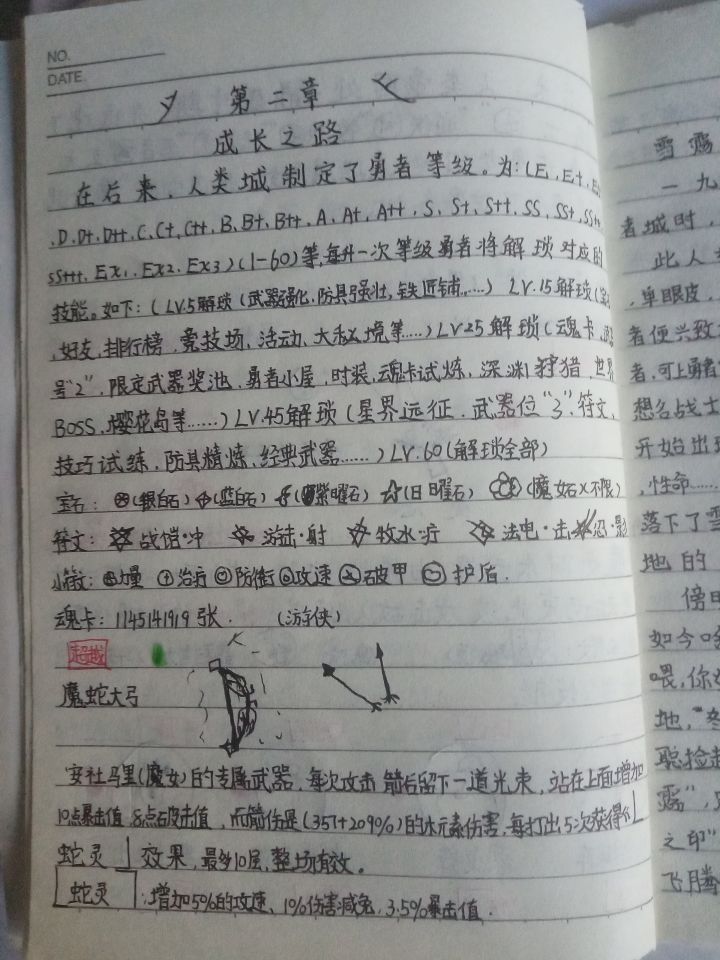 NO.
DATE.
第二章
成长之路
在后来，人类城制定了勇者等级。为：(E, E+, E
, D, D+, D++, C, C+, C++, B, B+, B++, A, A+, A++, S, S+, S++, SS, SS+, SS++
SS+++, Ex1, Ex2, Ex3)(1-60)等，每升一次等级勇者将解锁对应的
技能。如下：(LV.5解锁(武器强化，防具强壮，铁匠铺……) LV.15解锁(
，好友，排行榜，竞技场，活动，大秘境等……) LV25解锁(魂卡，
号"2"，限定武器奖池，勇者小屋，时装，魂卡试炼，深渊狩猎，世界
BOSS，樱花岛等……) LV.45解锁(星界远征，武器位"3"，符文，
技巧试练，防具精炼，经典武器……) LV.60(解锁全部)
宝石：(银白石) (蓝白石) (紫曜石) (日曜石) (魔女石X不限)
符文：战铠·冲 游击·射 牧水·疗 法电·击 忍·影
量 治疗 防御 攻速 破甲 护盾.
魂卡：1145141919张. (游侠)
超越
魔蛇大弓
安社马里(魔女)的专属武器，每次攻击箭后留下一道光束，站在上面增加
10点暴击值，8点破击值，而箭伤是(357+209%)的冰元素伤害，每打出5次获得
蛇灵 效果，最多10层，整场有效。
蛇灵：增加5%的攻速、1%伤害减免，3.5%暴击值.
雪露
一九
者城时，
此人
，单眼皮，
者便兴致
者，可上勇者
想名战士
开始出现
，性命……
落下了雪
地的
傍日
如今
喂，你
地，"冬
聪捡起
露"，
之印"
飞腾